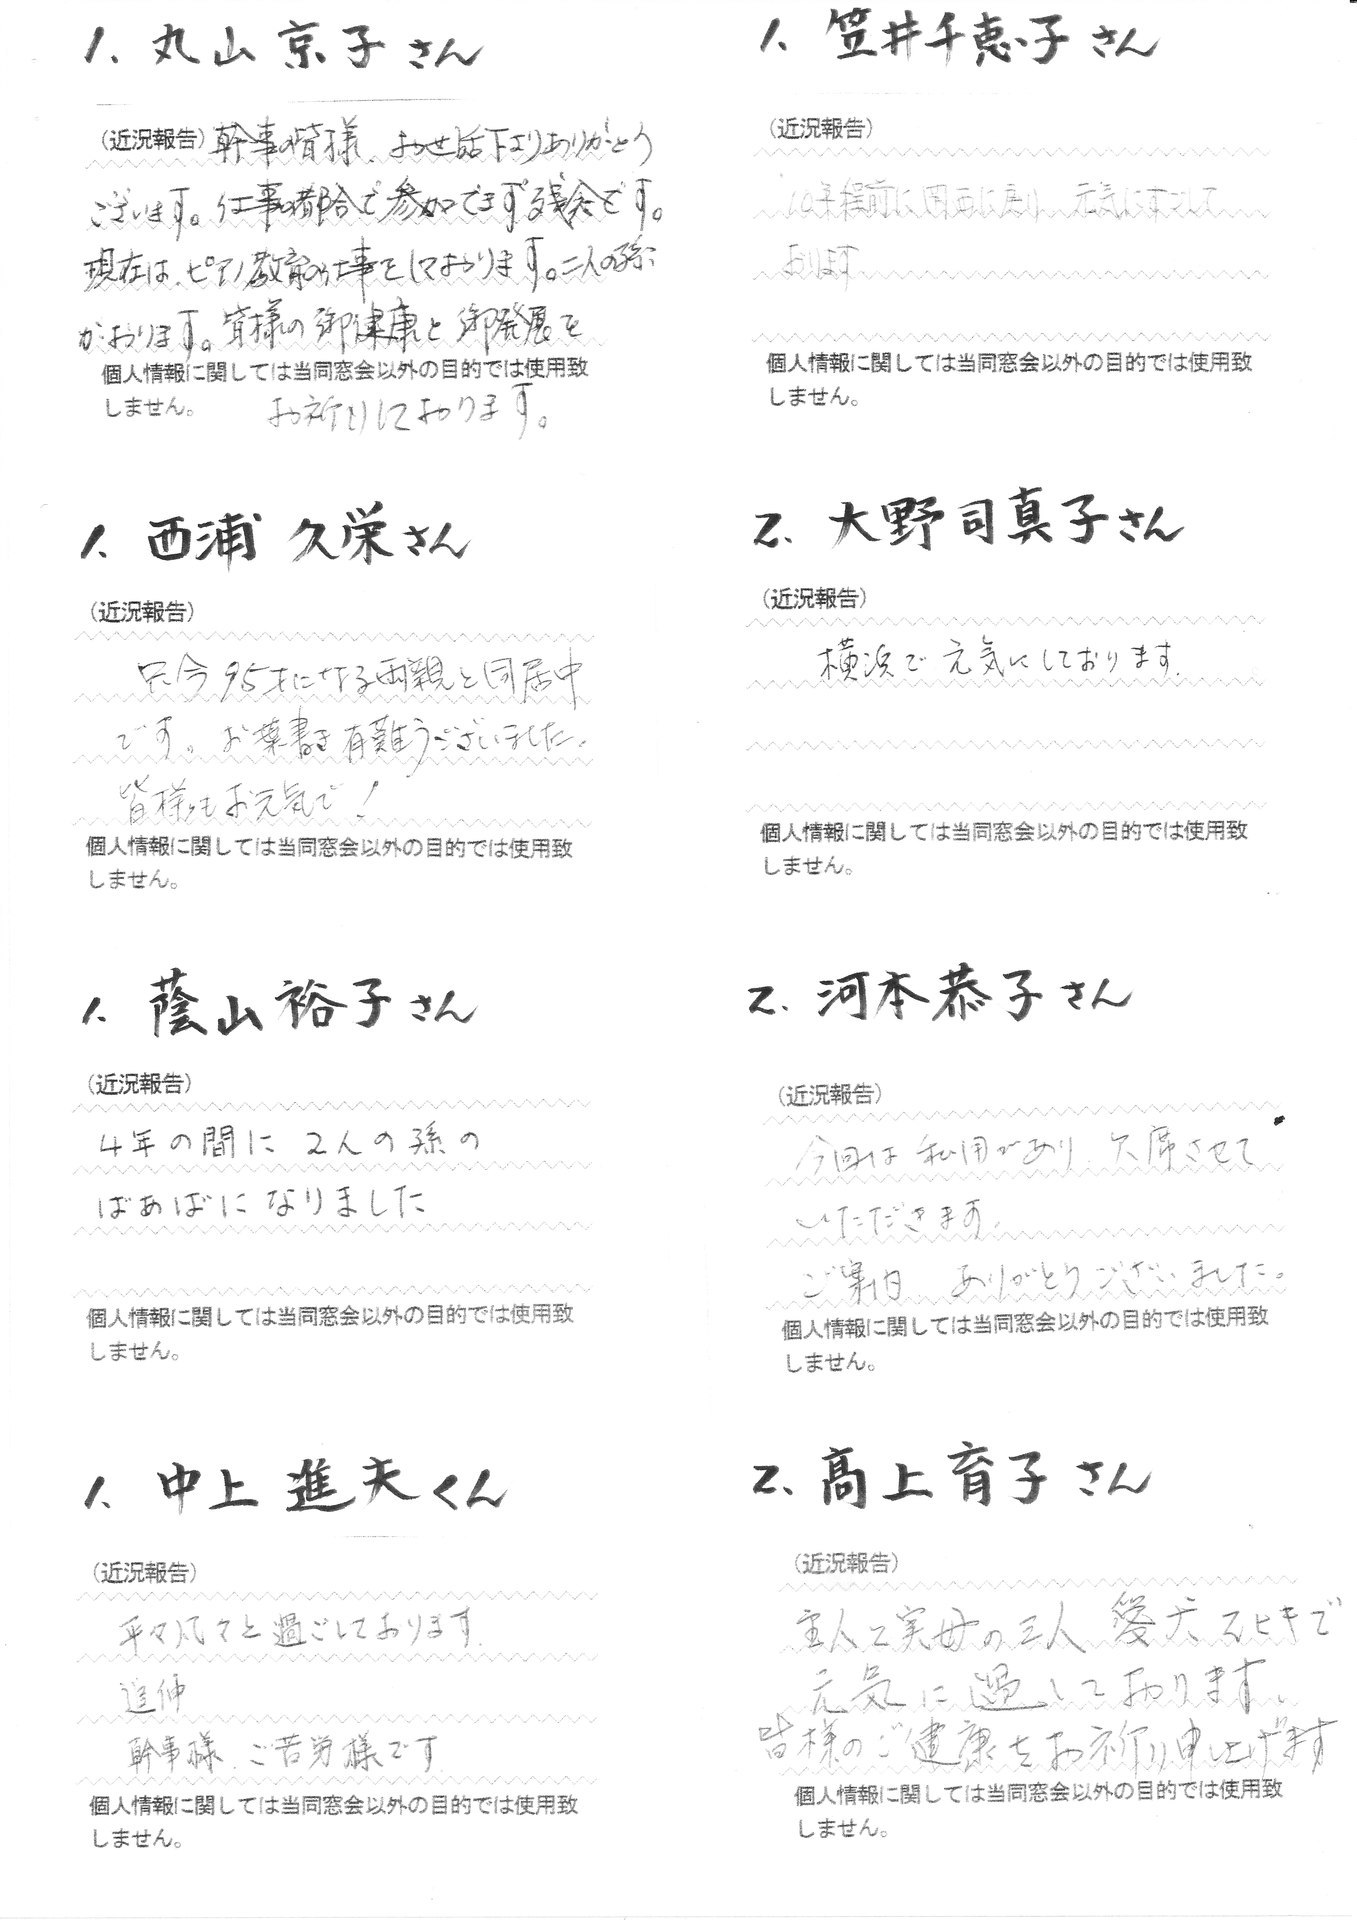 1. 丸山 京子さん
(近況報告) 幹事の皆様、お世話下さりありがとう
ございます。仕事の都合で参加できず残念です。
現在は、ピアノ教育の仕事をしております。二人の孫
がおります。皆様の御健康と御発展を
個人情報に関しては当同窓会以外の目的では使用致
しません。
お祈りしております。
1. 西浦 久栄さん
(近況報告)
只今95才になる両親と同居中
です。お葉書き有難うございました。
皆様もお元気で!
個人情報に関しては当同窓会以外の目的では使用致
しません。
1. 蔭山 裕子さん
(近況報告)
4年の間に 2人の孫の
ばあばになりました
個人情報に関しては当同窓会以外の目的では使用致
しません。
1. 中上 進夫くん
(近況報告)
平々凡々と過ごしております。
追伸
幹事様、ご苦労様です
個人情報に関しては当同窓会以外の目的では使用致
しません。
1. 笠井千恵子さん
(近況報告)
10年程前に関西に戻り 元気にすごして
おります
個人情報に関しては当同窓会以外の目的では使用致
しません。
2. 大野司真子さん
(近況報告)
横浜で元気にしております。
個人情報に関しては当同窓会以外の目的では使用致
しません。
2. 河本恭子さん
(近況報告)
今回は私用があり、欠席させて
いただきます。
ご案内 ありがとうございました。
個人情報に関しては当同窓会以外の目的では使用致
しません。
2. 髙上育子さん
(近況報告)
主人と実母の三人 愛犬 ヒキで
元気に過しております。
皆様のご健康をお祈り申し上げます
個人情報に関しては当同窓会以外の目的では使用致
しません。